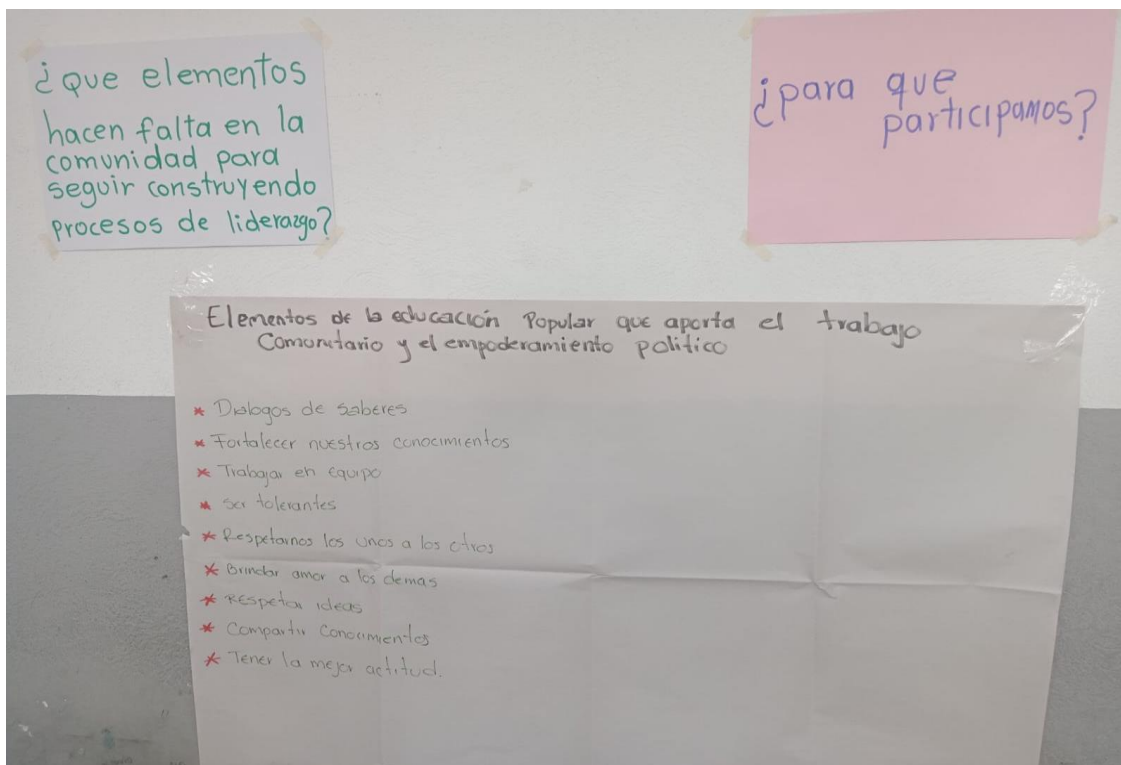 ¿que elementos
hacen falta en la
comunidad para
seguir construyendo
procesos de liderazgo?
¿para que
participamos?
Elementos de la educación Popular que aporta el trabajo
Comunitario y el empoderamiento politico
* Dialogos de saberes
* Fortalecer nuestros conocimientos
* Trabajar en equipo
* Ser tolerantes
* Respetarnos los unos a los otros
* Brindar amor a los demas
* Respetar ideas
* Compartir Conocimientos
* Tener la mejor actitud.